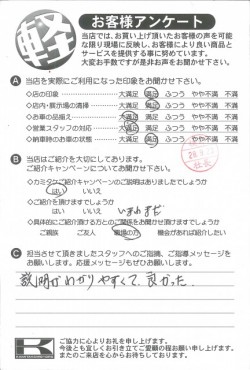 軽
お客様アンケート
当店では、お買い上げ頂いたお客様の声を可能
な限り現場に反映し、お客様により良い商品と
サービスを提供する事に努めています。
大変お手数ですが是非お声をお聞かせ下さい。
A 当店を実際にご利用になった印象をお聞かせ下さい。
◇店の印象 大満足 満足 ふつう やや不満 不満
◇店内・展示場の清掃 大満足 満足 ふつう やや不満 不満
◇お車の品揃え 大満足 満足 ふつう やや不満 不満
◇営業スタッフの対応 大満足 満足 ふつう やや不満 不満
◇納車時のお車の状態 大満足 満足 ふつう やや不満 不満
B 当店はご紹介を大切にしてあります。
ご紹介キャンペーンについてお聞かせ下さい。
◇カミタケご紹介キャンペーンのご説明はありましたでしょうか
はい いいえ
◇ご紹介を頂けますでしょうか
はい いいえ いまのまだ
◇具体的にご紹介頂ける方とのご関係をお聞かせ頂けますでしょうか
ご親族 ご友人 職場の方 機会があれば紹介したい
C 担当させて頂きましたスタッフへのご指摘、ご指導メッセージを
お願いします。応援メッセージもぜひお願いします。
説明がわかりやすくて、良かった。
K
ご協力に心よりお礼を申し上げます。
今後とも宜しくお引き立てご愛顧の程お願い申し上げます。
またのご来店を心からお待ちしております。